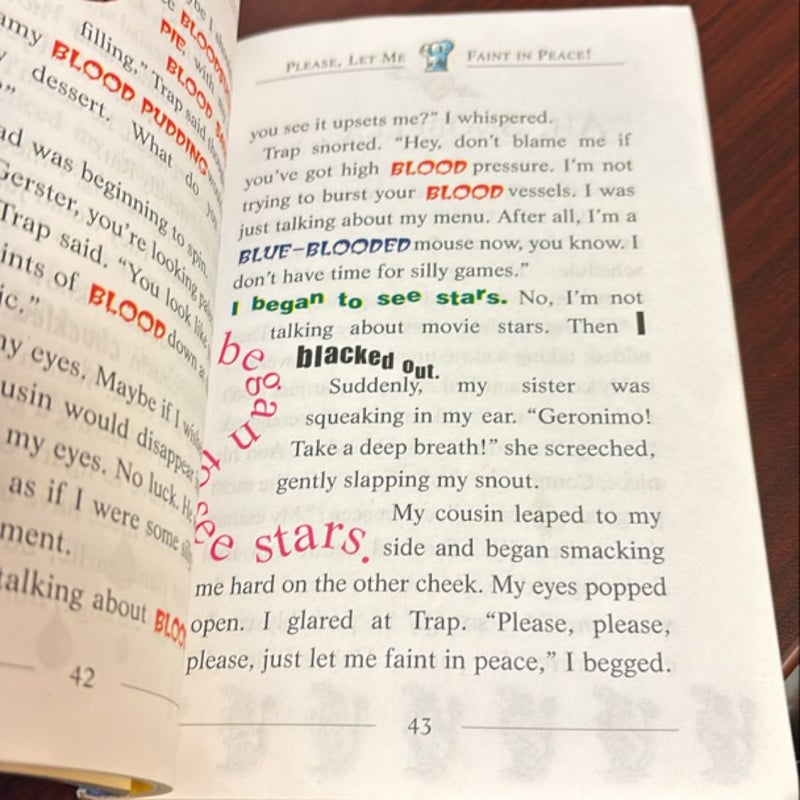 filling," Trap said
BLOOD PUDDING
dessert. What do you
was beginning to spin.
Gerster, you're looking pale
Trap said. "You look like
of BLOOD down
my eyes. Maybe if I
would disappear
my eyes. No luck. He
as if I were some
talking about
42
PLEASE, LET ME FAINT IN PEACE!
you see it upsets me?" I whispered.
Trap snorted. "Hey, don't blame me if
you've got high BLOOD pressure. I'm not
trying to burst your BLOOD vessels. I was
just talking about my menu. After all, I'm a
BLUE-BLOODED mouse now, you know. I
don't have time for silly games."
I began to see stars. No, I'm not
talking about movie stars. Then I
blacked out.
began to see stars.
Suddenly, my sister was
squeaking in my ear. "Geronimo!
Take a deep breath!" she screeched,
gently slapping my snout.
My cousin leaped to my
side and began smacking
me hard on the other cheek. My eyes popped
open. I glared at Trap. "Please, please,
please, just let me faint in peace," I begged.
43